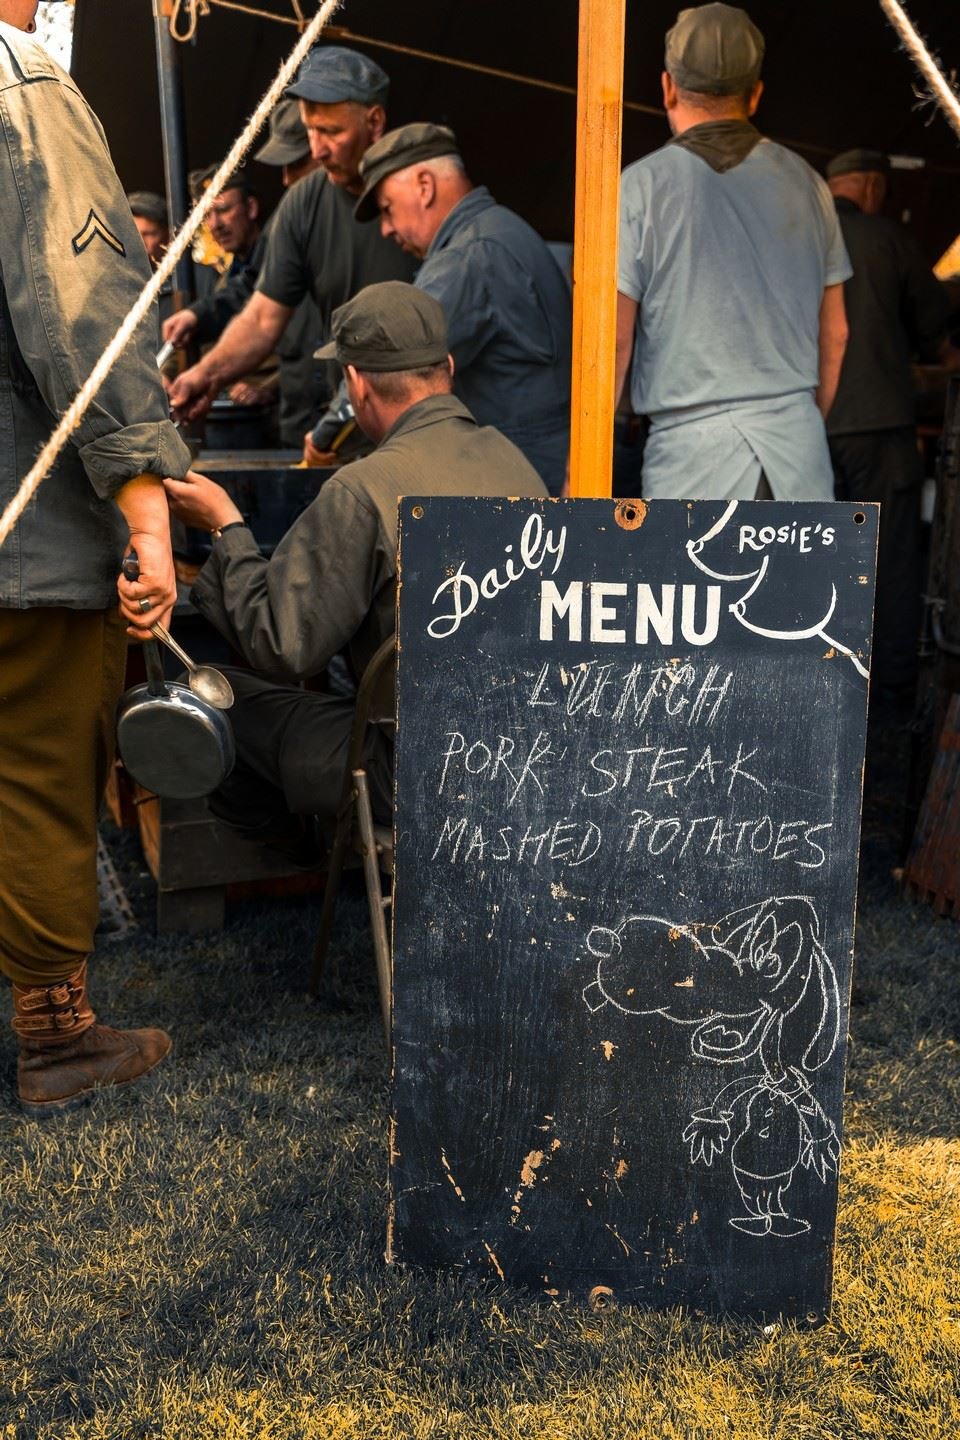 Daily
ROSIE'S
MENU
PORK STEAK
MASHED POTATOES